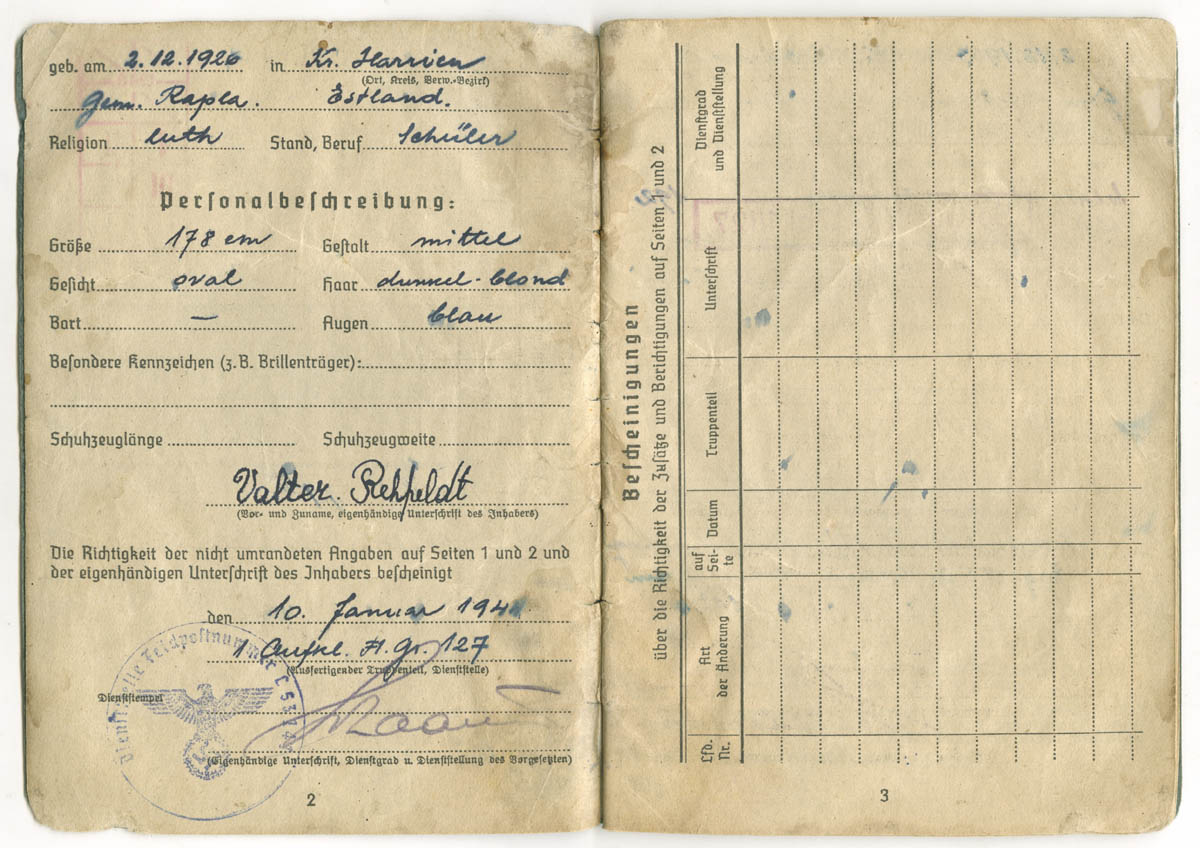 geb. am 2.12.1926 in Kr. Harrien
(Ort, Kreis, Verw.-Bezirk)
Gem. Rapla. Estland.
Religion luth Stand, Beruf Schüler
Personalbeschreibung:
Größe 178 cm Gestalt mittel
Gesicht oval Haar dunkel-blond
Bart — Augen blau
Besondere Kennzeichen (z.B. Brillenträger):
Schuhzeuglänge Schuhzeugweite
Valter. Rehfeldt
(Vor- und Zuname, eigenhändige Unterschrift des Inhabers)
Die Richtigkeit der nicht umrandeten Angaben auf Seiten 1 und 2 und
der eigenhändigen Unterschrift des Inhabers bescheinigt
den 10. Januar 194
1 Aufkl. A. Gr. 127
(Ausfertigender Truppenteil, Dienststelle)
Dienststelle Feldpostnummer
Dienststempel
(Eigenhändige Unterschrift, Dienstgrad u. Dienststellung des Vorgesetzten)
2
Bescheinigungen
über die Richtigkeit der Zusätze und Berichtigungen auf Seiten 1 und 2
Lfd.
Nr.
Art
der Änderung
auf
Sei-
te
Datum
Truppenteil
Unterschrift
Dienstgrad
und Dienststellung
3